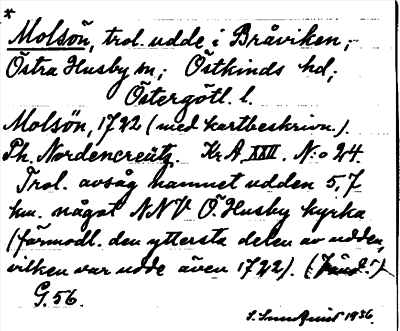 *
Molsön, trol. udde i Bråviken,
Östra Husby sn; Östkinds hd;
Östergötl. l.
Molsön, 1722 (med kartbeskrivn.).
Th. Nordencreutz. Kr A XXII. N:o 24.
Trol. avsåg namnet udden 5,7
km. något NNV Ö Husby kyrka
(förmodl. den yttersta delen av udden,
vilken var udde även 1722).
G. 56.
1936.